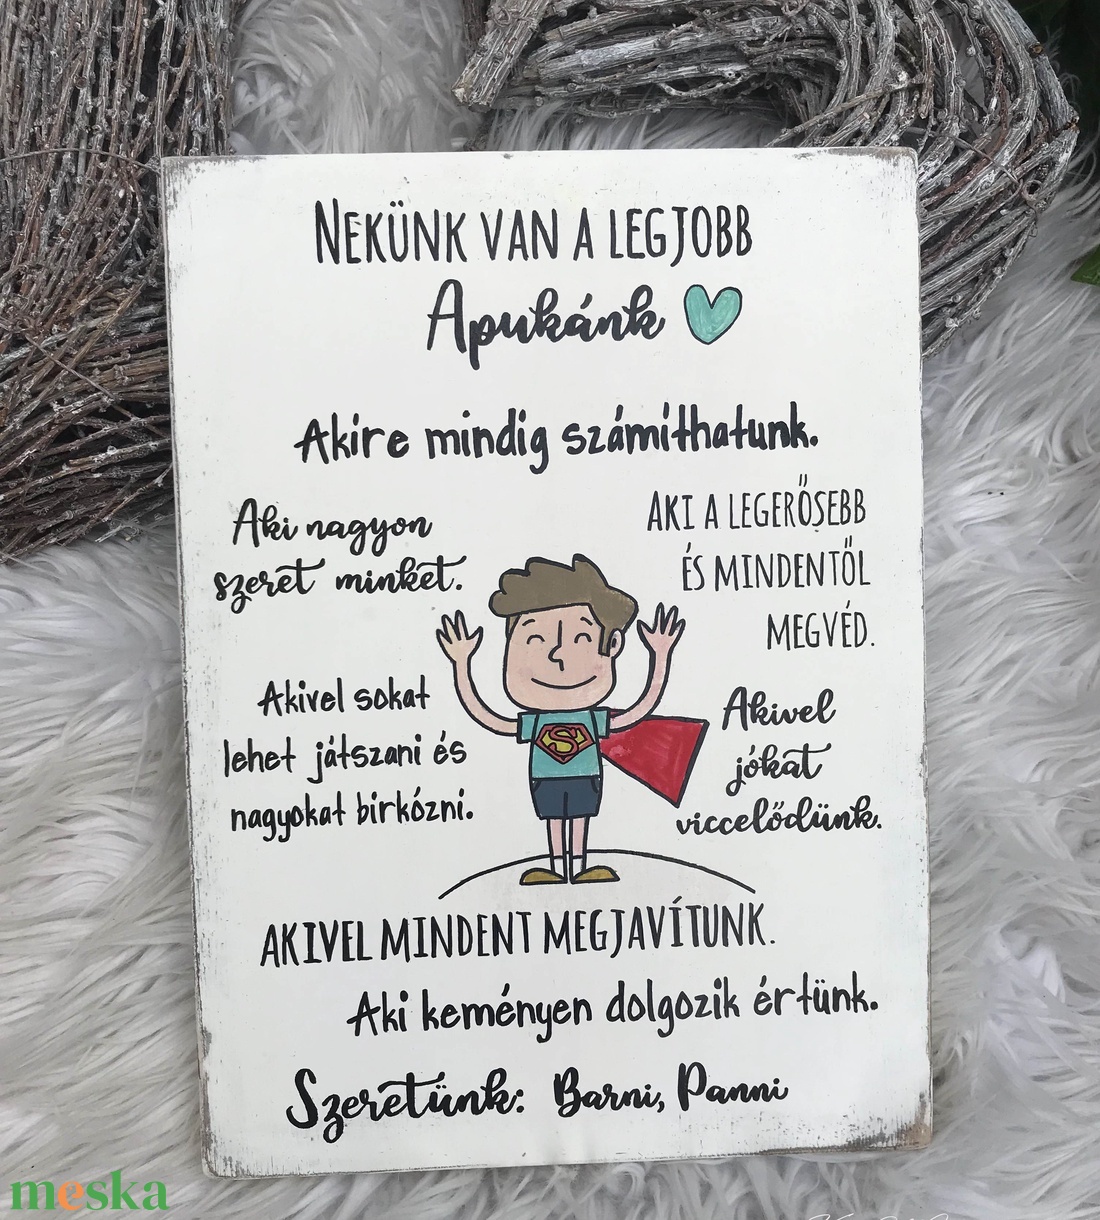 NEKÜNK VAN A LEGJOBB
Apukánk
Akire mindig számíthatunk.
Aki nagyon
szeret minket.
AKI A LEGERŐSEBB
ÉS MINDENTŐL
MEGVÉD.
Akivel sokat
lehet játszani és
nagyokat birkózni.
Akivel
jókat
viccelődünk.
S
AKIVEL MINDENT MEGJAVÍTUNK.
Aki keményen dolgozik értünk.
Szeretünk: Barni, Panni
meska